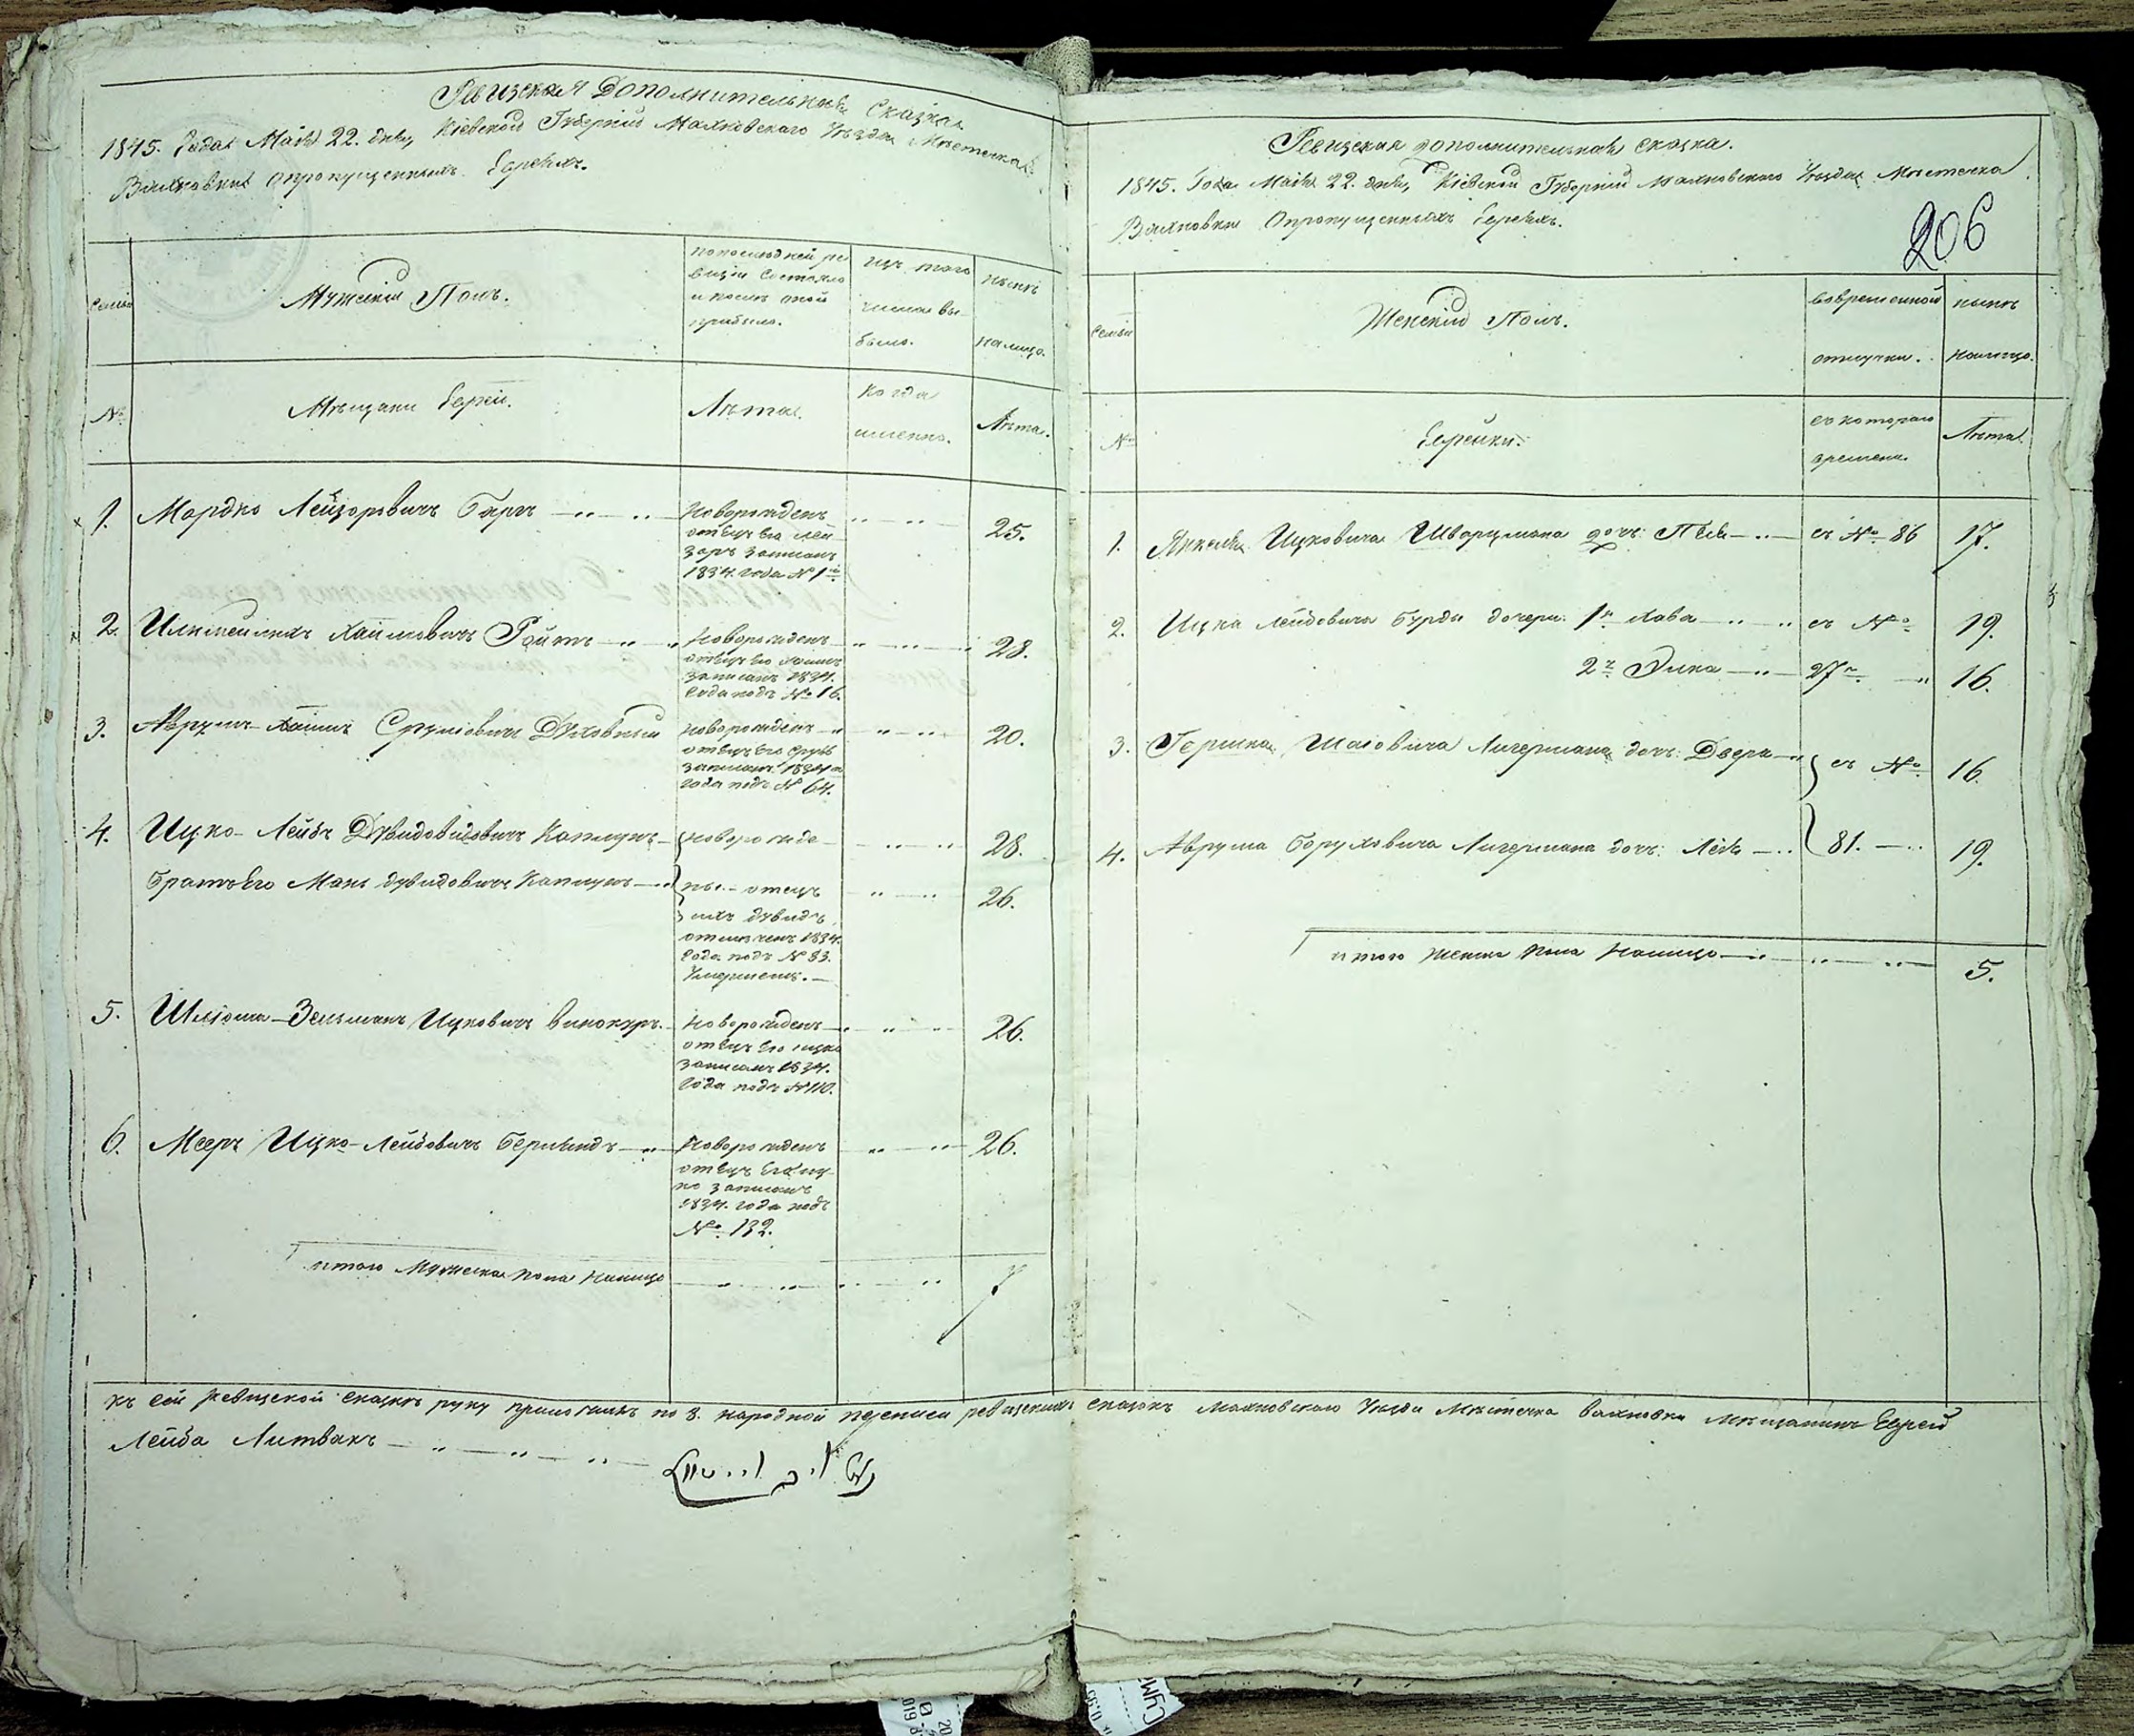 Ревизская Дополнительная Сказка
1845. Года Маия 22. дня, Кіевской Губерніи Махновскаго Уезда Местечка
Вахновки Опропущенныхъ Евреяхъ.
Семьи
Мужескій Полъ.
по последней ре
визіи Состояло
и после оной
прибыло.
изъ того
числа вы
было.
ныне
налицо.
№
Мещани Евреи.
Лета.
Когда
именно.
Лета.
1. Мордко Лейзоровичъ Баръ
Новорожденъ
отецъ Его Лей
заръ записанъ
1834. года № 1й
25.
2. Хаимовичъ Ройтъ
Новорожденъ
отецъ Его Хаимъ
записанъ 1834.
года подъ № 16.
28.
3. Аврумъ-Хаимъ Сруліовичъ Духовный
Новорожденъ
отецъ Его Сруль
записанъ 1834
года подъ № 64.
20.
4. Ицко-Лейбъ Дувидовичъ Каплунъ
Новорожде
28.
братъ Его Дувидовичъ Каплунъ
ны отецъ
26.
ихъ Дувидъ
отмеченъ 1834.
Года подъ № 83.
Умершемъ.
5. Шліома-Зельманъ Ицковичъ Винокуръ.
Новорожденъ
отецъ Его Ицко
записанъ 1834.
Года подъ № 110.
26.
6. Мееръ Ицко-Лейбовичъ
Новорожденъ
отецъ Его Иц
ко записанъ
1834. года подъ
№ 132.
26.
итого Мужеска пола Налицо
7
Ревизская дополнительная сказка.
1845. Года Маия 22. дня, Кіевской Губерніи Махновскаго Уезда Местечка
Вахновки Опропущенныхъ Евреяхъ.
206
Семьи
Женскій Полъ.
Вовременной
отлучки.
ныне
налицо.
№
Еврейки.
съ котораго
времени.
Лета
1. Янкеля Ицковича Шварцмана дочь
съ № 86
17.
2. Ицка Лейбовича Бурды дочери 1я Хава
съ №
19.
2я Элка
27
16.
3. Гершка Шаговича Лигермана дочь Двера
съ №
16.
4. Аврума Боруховича Лигермана дочь
81.
19.
итого Женска пола Налицо
5.
къ сей ревизской сказке руку приложилъ по 8. народной переписи ревизскихъ сказокъ Махновскаго Уезда Местечка Вахновки Мещанинъ Еврей
Лейба Литвакъ